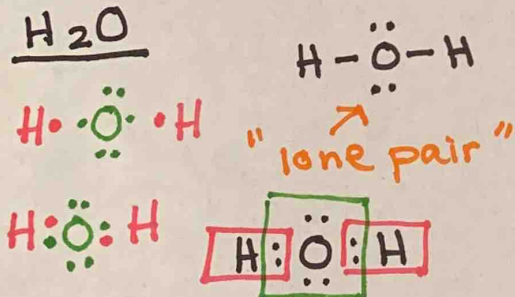 H₂O
H-Ö-H
H· ·Ö· ·H
"lone pair"
H:Ö:H
H:Ö:H